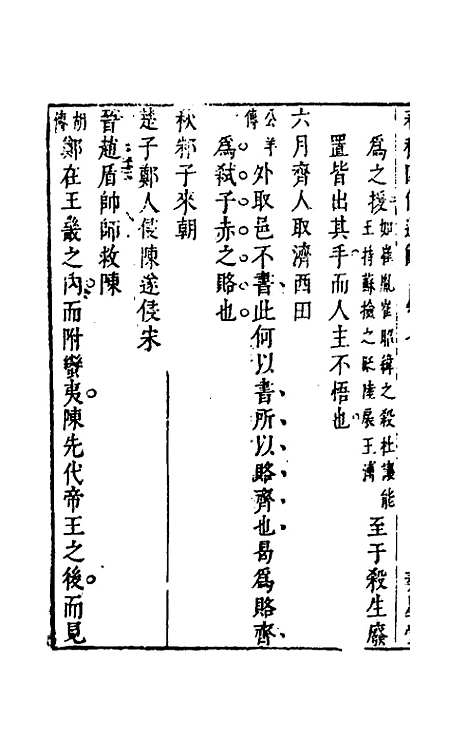 為之援如崔胤崔昭緯之殺杜讓能
王摶蘇撿之貶陸扆王溥至于殺生廢
置皆出其手而人主不悟也
六月齊人取濟西田
公羊傳外取邑不書此何以書所以賂齊也曷為賂齊
為弒子赤之賂也
秋邾子來朝
楚子鄭人侵陳遂侵宋
晉趙盾帥師救陳
胡傳鄭在王畿之內而附蠻夷陳先代帝王之後而見